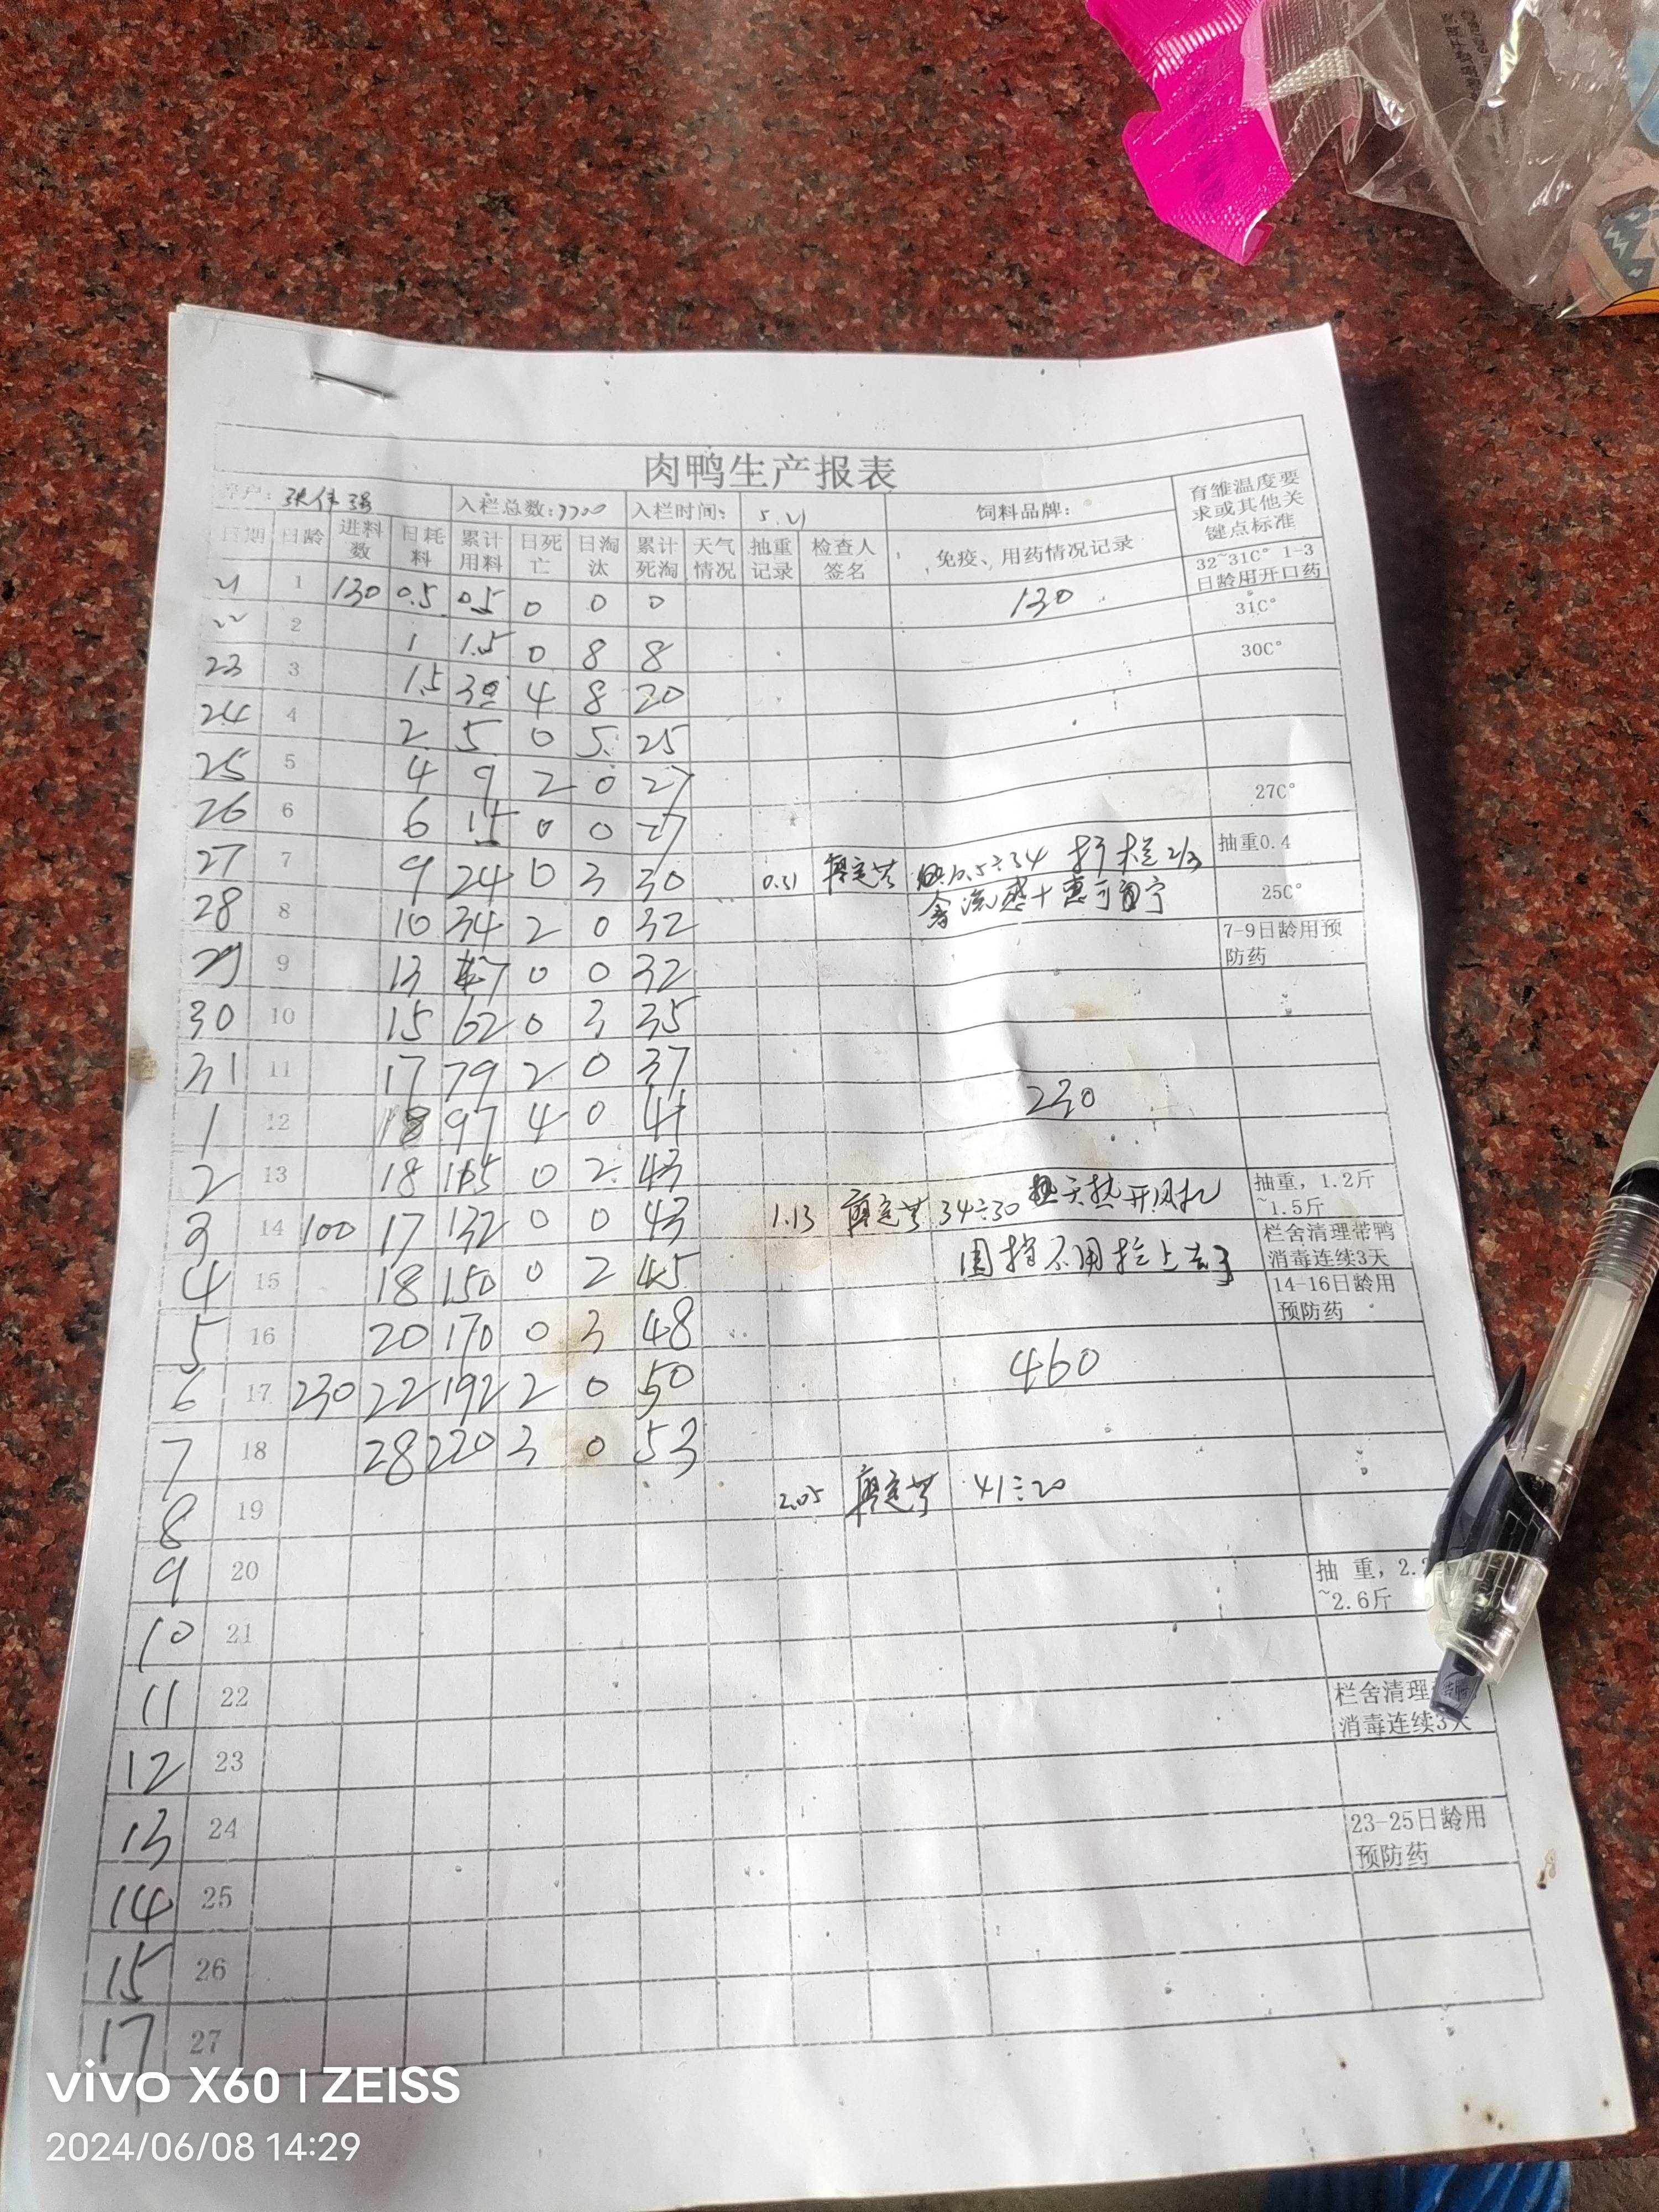 肉鸭生产报表
养户: 张伟强 入栏总数: 入栏时间: 5.21 饲料品牌: 育雏温度要求或其他关键点标准
日期 日龄 进料数 日耗料 累计用料 日死亡 日淘汰 累计死淘 天气情况 抽重记录 检查人签名 免疫、用药情况记录
21 1 130 0.5 0.5 0 0 0 130 32~31C° 1-3日龄用开口药
22 2 1 1.5 0 8 8 31C°
23 3 1.5 30 4 8 20 30C°
24 4 2 5 0 5 25
25 5 4 9 2 0 27
26 6 6 15 0 0 27 27C°
27 7 9 24 0 3 30 0.31 10.5÷34 扩栏2/3 抽重0.4
28 8 10 34 2 0 32 禽流感+ 25C°
29 9 13 47 0 0 32 7-9日龄用预防药
30 10 15 62 0 3 35
31 11 17 79 2 0 37
1 12 18 97 4 0 41 230
2 13 18 115 0 2 43
3 14 100 17 132 0 0 43 1.13 34÷30 天热开风机 抽重, 1.2斤~1.5斤
4 15 18 150 0 2 45 围挡不用拦上去了 栏舍清理带鸭消毒连续3天
5 16 20 170 0 3 48 14-16日龄用预防药
6 17 230 22 192 2 0 50 460
7 18 28 220 3 0 53
8 19 2.05 41÷20
9 20 抽 重, 2.
~2.6斤
10 21
11 22 栏舍清理
消毒连续3天
12 23
13 24 23-25日龄用预防药
14 25
15 26
17 27
vivo X60 | ZEISS
2024/06/08 14:29